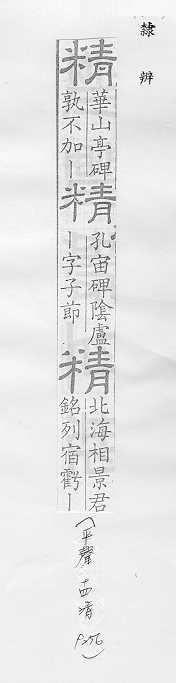 隸辨
精
華山亭碑
孰不加｜
精
孔宙碑陰盧
｜字子節
精
北海相景君
銘列宿虧｜
（平聲 十四清 P256）